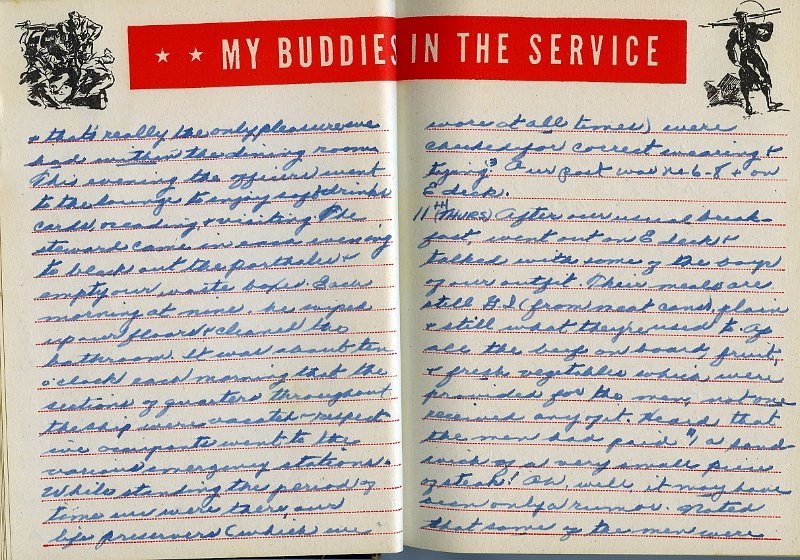 MY BUDDIES IN THE SERVICE
+ that's really the only pleasure we
had within the dining room.
This evening the officers went
to the lounge to enjoy soft drinks
cards, reading, + visiting. The
steward came in each evening
to black out the portholes +
empty our waste boxes. Each
morning at nine he wiped
up our floors + cleaned the
bathroom. It was about ten
o'clock each morning that the
sections of quarters throughout
the ship were vacated – respect
ive occupants went to the
various emergency stations.
While standing the period of
time we were there our
life preservers (which we
wore at all times) were
checked for correct wearing +
tying. Our post was no 6-8 + on
E deck.
11th (THURS) After our usual break-
fast, went out on E deck +
talked with some of the boys
of our outfit. Their meals are
still G.I (from meat cans), plain
+ still what they're used to. Of
all the beef on board, fruit,
+ fresh vegetables which were
provided for the men, not one
received any of it. Heard that
the men had paid $1, a sand-
wich of a very small piece
of steak! Oh well, it may have
been only a rumor. Noted
that some of the men were